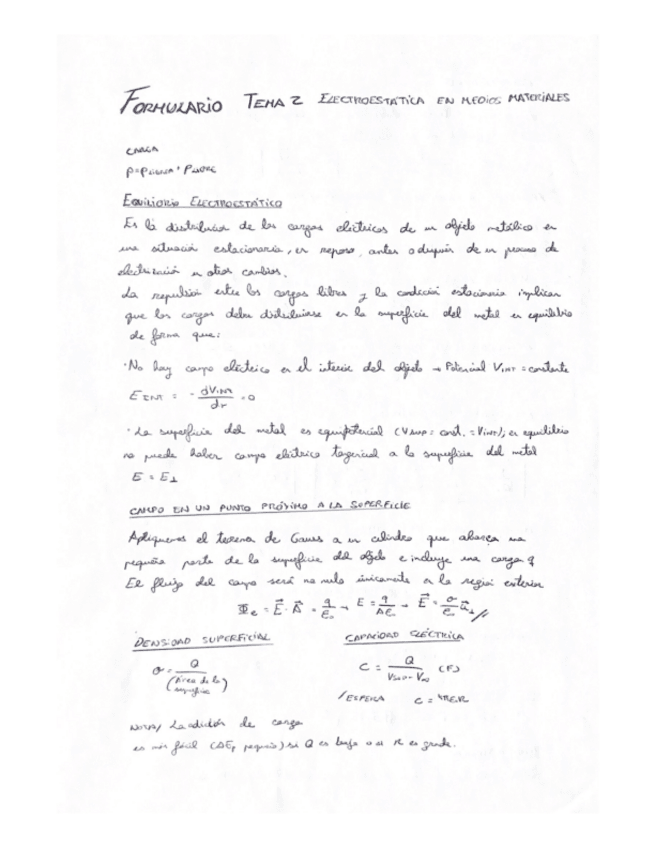 FORMULARIO TEMA 2 ELECTROESTÁTICA EN MEDIOS MATERIALES
CARGA
EQUILIBRIO ELECTROESTÁTICO
Es la distribución de las cargas eléctricas de un objeto metálico en
una situación estacionaria, en reposo, antes o después de un proceso de
electrización u otros cambios.
La repulsión entre las cargas libres y la condición estacionaria implican
que las cargas deben distribuirse en la superficie del metal en equilibrio
de forma que:
· No hay campo eléctrico en el interior del objeto → Potencial VINT = constante
EINT = - dVINT/dr = 0
· La superficie del metal es equipotencial (VSUP = const. = VINT); en equilibrio
no puede haber campo eléctrico tangencial a la superficie del metal
E = E⊥
CAMPO EN UN PUNTO PRÓXIMO A LA SUPERFICIE
Apliquemos el teorema de Gauss a un cilindro que abarca una
pequeña parte de la superficie del objeto e incluye una carga q
El flujo del campo será no nulo únicamente en la región exterior
Φe = E⃗ · A⃗ = q/ε₀ → E = q/Aε → E⃗ = σ/ε u⃗⊥ //
DENSIDAD SUPERFICIAL CAPACIDAD ELÉCTRICA
σ = Q/(Área de la superficie) C = Q/(V - V∞) (F)
/ESFERA C = 4πεR
NOTA/ La adición de carga
es más fácil (ΔEp pequeña) si Q es baja o si R es grande.